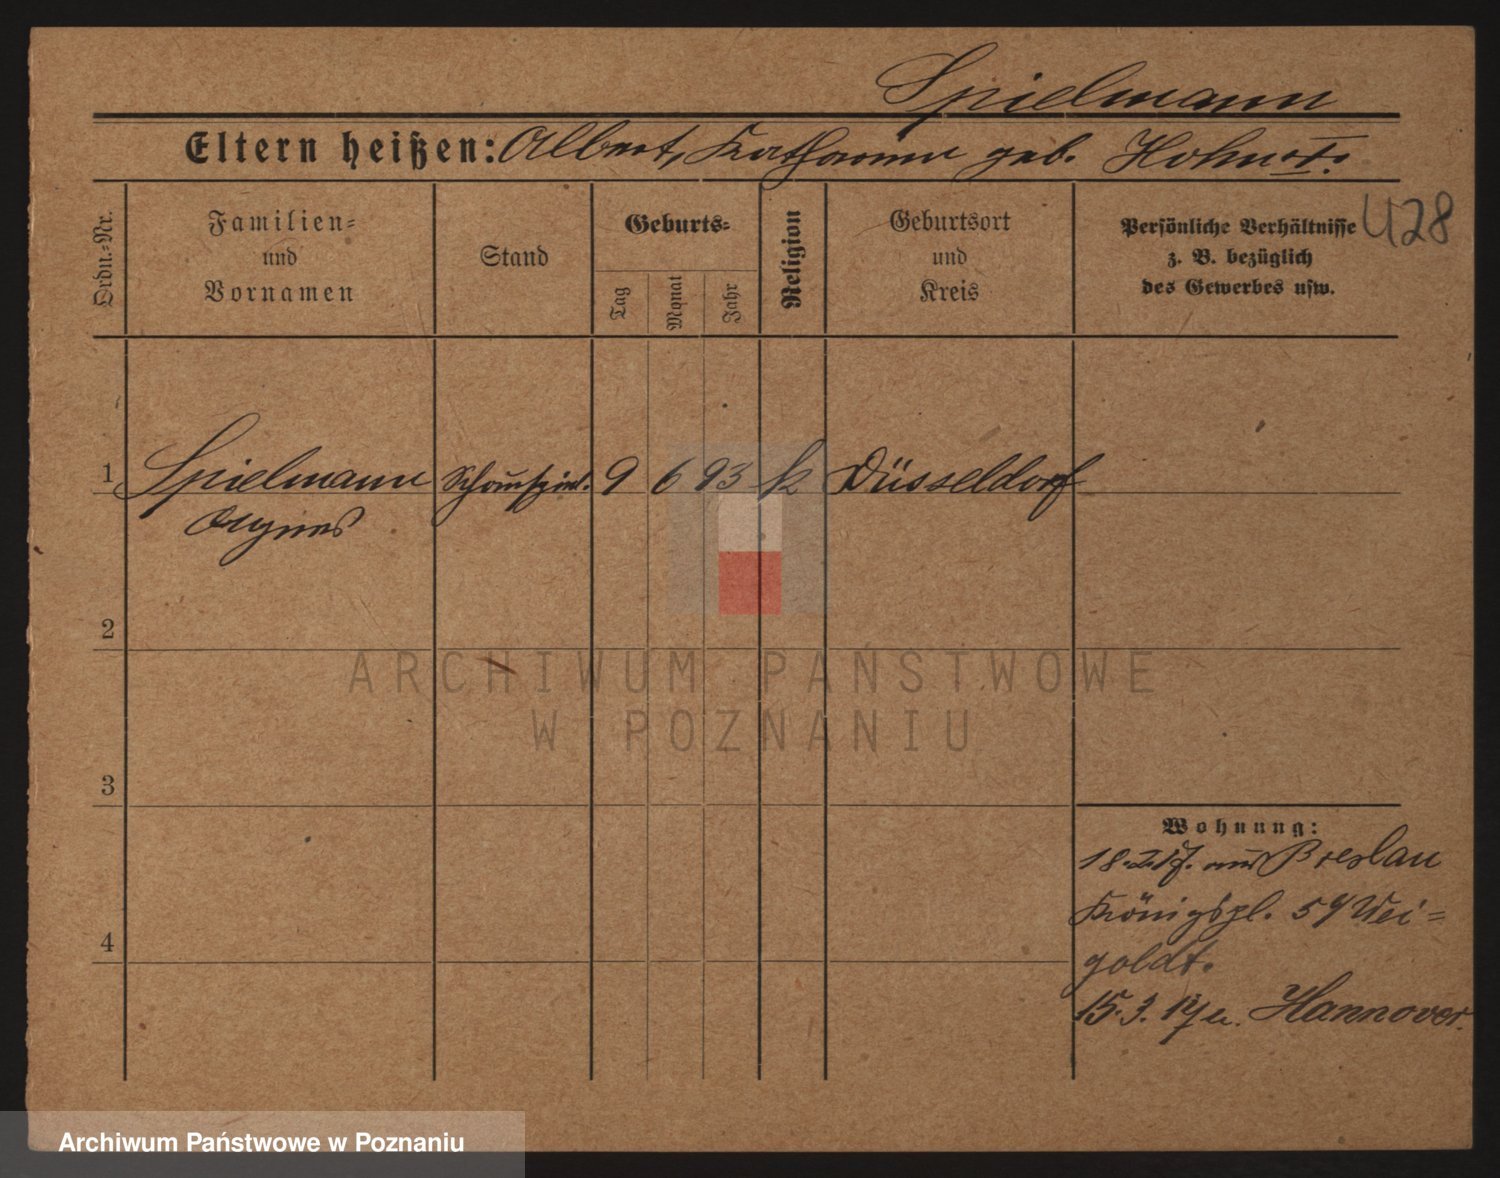 Spielmann
Eltern heißen: Albert, Katharina geb.
428
Ordn.-Nr.
Familien-
und
Vornamen
Stand
Geburts-
Tag
Monat
Jahr
Religion
Geburtsort
und
Kreis
Persönliche Verhältnisse
z. B. bezüglich
des Gewerbes usw.
1 Spielmann Schauspiel. 9 6 93 k Düsseldorf
Agnes
2
ARCHIWUM PAŃSTWOWE
W POZNANIU
3
4
Wohnung:
18.2.17. aus Breslau
Königspl. 5 Wei-
goldt.
15.3.17 n. Hannover.
Archiwum Państwowe w Poznaniu